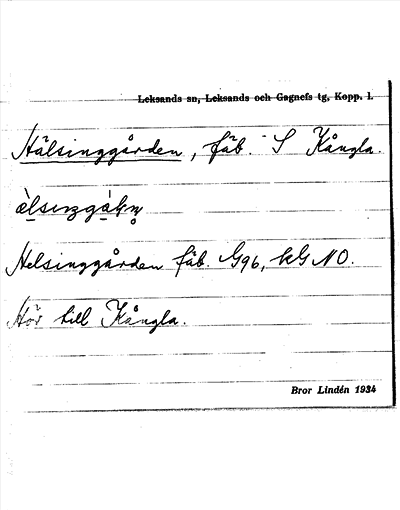 Leksands sn, Leksands och Gagnefs tg, Kopp. l.
Hälsinggården, fäb. S Kångla.
Helsinggården fäb. G96, kG NO.
Hör till Kångla.
Bror Lindén 1934